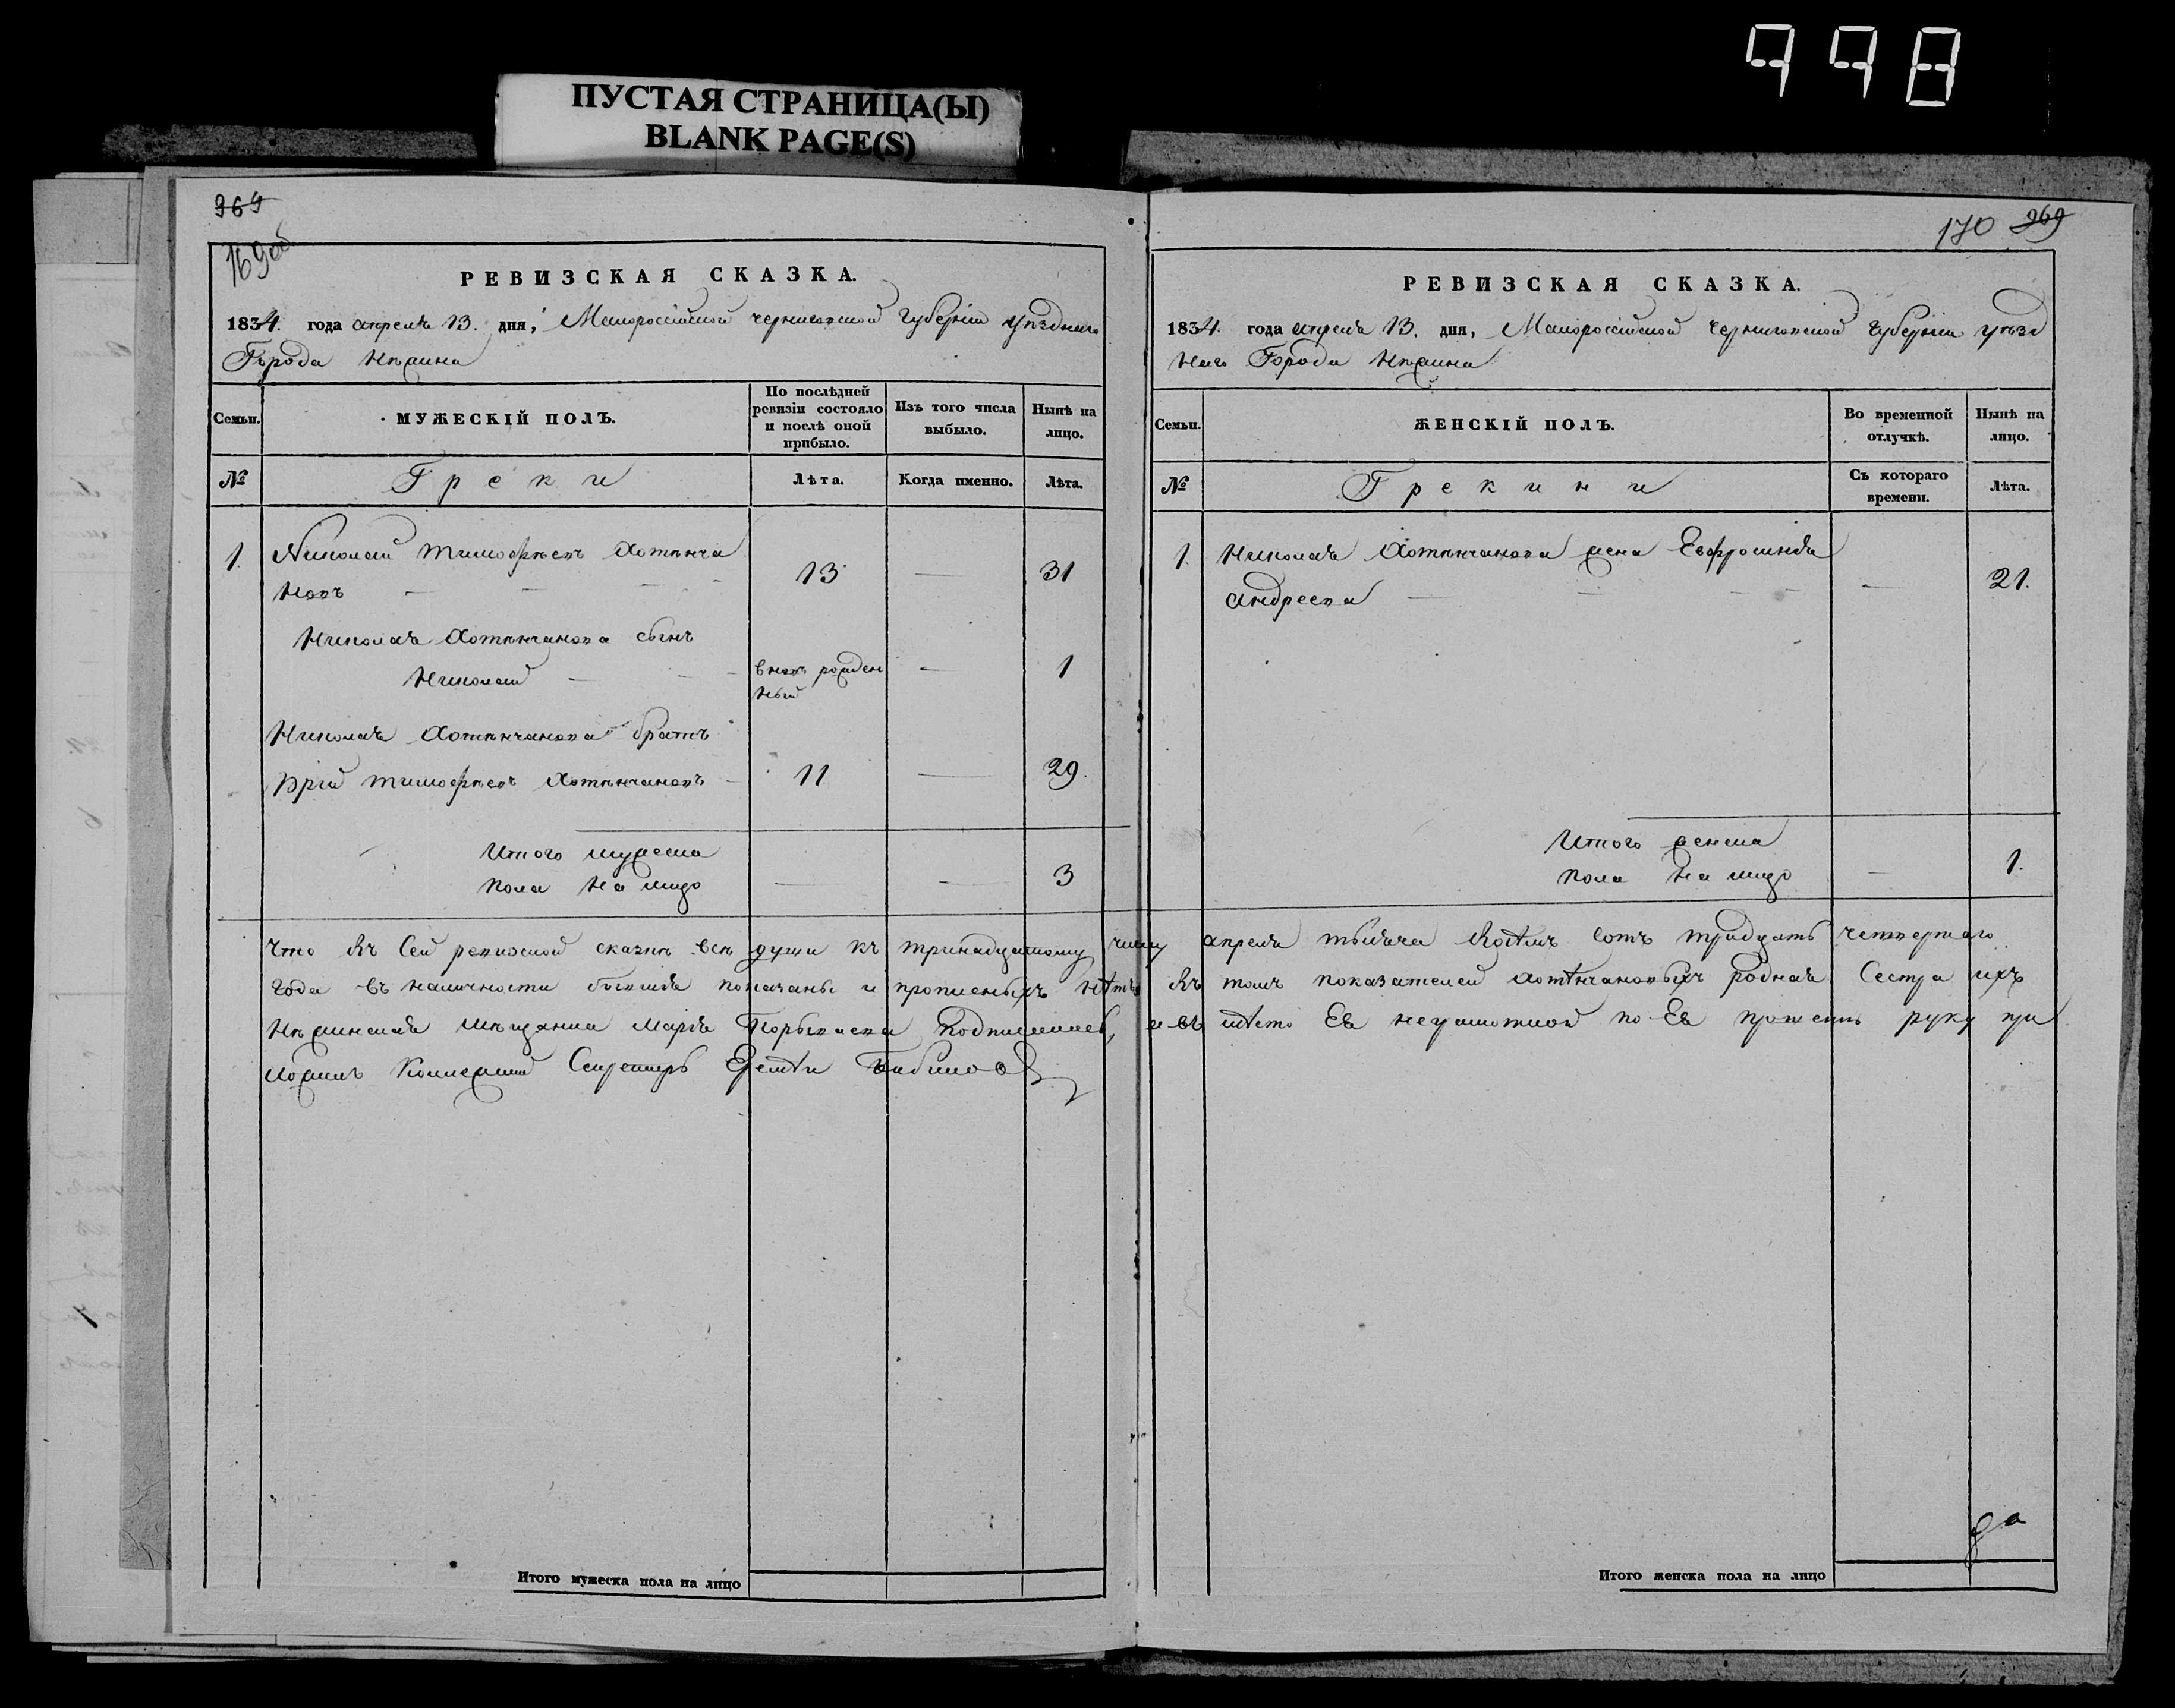 998
ПУСТАЯ СТРАНИЦА(Ы)
BLANK PAGE(S)
969
169 об
РЕВИЗСКАЯ СКАЗКА.
1834. года апреля 13. дня, Малороссійской черниговской Губерніи уѣзднаго
Города Нѣжина
Семьи.
МУЖЕСКІЙ ПОЛЪ.
По послѣдней ревизіи состояло и послѣ оной прибыло.
Изъ того числа выбыло.
Нынѣ на лицо.
№
Греки
Лѣта.
Когда именно.
Лѣта.
1. Николай Тимофѣевъ Хотѣнча
новъ — — — 13 — 31
Николая Хотѣнчанова сынъ
Николай — — — вновь рожден — 1
ный
Николая Хотѣнчанова братъ
Юрій Тимофѣевъ Хотѣнчановъ — 11 — 29.
Итого мужеска
пола на лицо — — 3
170 969
РЕВИЗСКАЯ СКАЗКА.
1834. года апреля 13. дня, Малороссійской черниговской Губерніи уѣзд
наго Города Нѣжина
Семьи.
ЖЕНСКІЙ ПОЛЪ.
Во временной отлучкѣ.
Нынѣ на лицо.
№
Грекини
Съ котораго времени.
Лѣта.
1. Николая Хотѣнчанова жена Евфросинія
Андреева — — — — — 21.
Итого женска
пола на лицо — 1.
Что въ сей ревизской сказкѣ всѣ души къ тринадцатому числу апреля тысяча восѣмъ сотъ тридцать четвертаго
года въ наличности бывшія показаны и прописныхъ нѣтъ въ томъ показателей Хотѣнчановыхъ родная Сестра ихъ
Нѣжинская мѣщанка Марія подписалась, а въ мѣсто Ея неграмотной по Ея прозбѣ руку при
ложилъ Колежскій Секретарь
Итого мужеска пола на лицо
Итого женска пола на лицо